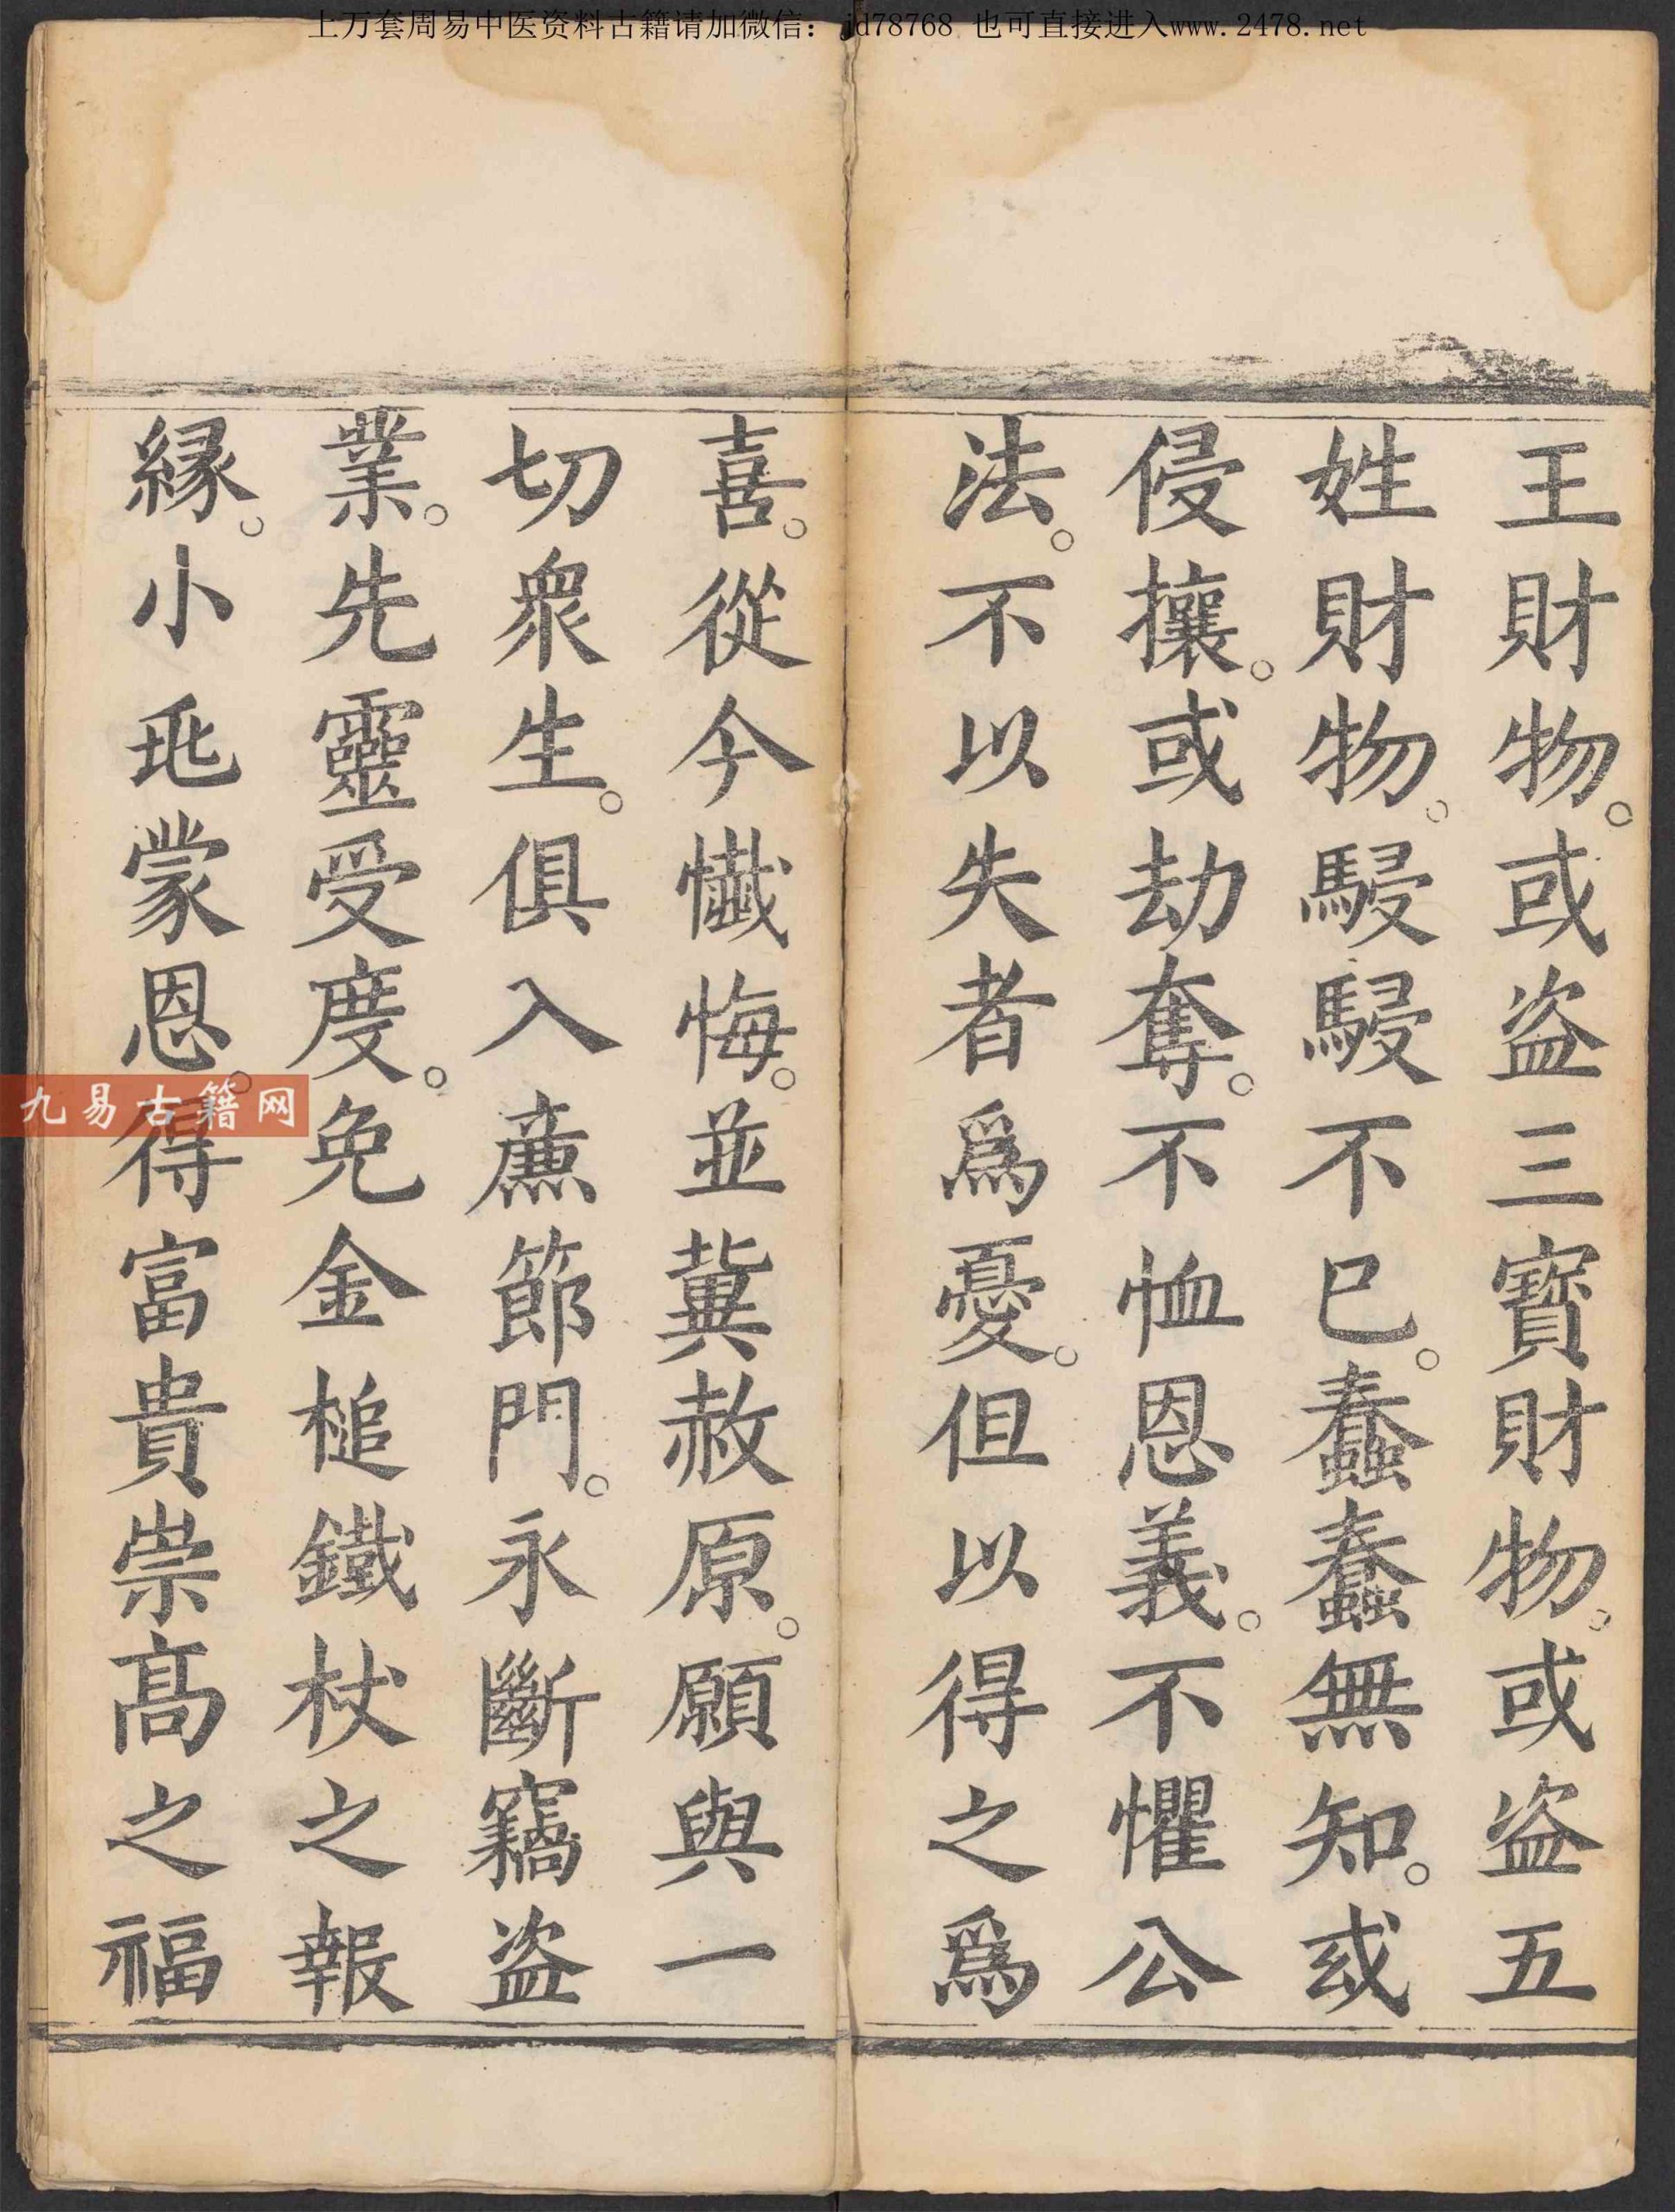 上万套周易中医资料古籍请加微信： jd78768 也可直接进入www.2478.net
王財物。或盗三寳財物。或盗五
姓財物。駸駸不已。蠢蠢無知。或
侵攘。或劫奪。不恤恩義。不懼公
法。不以失者爲憂。但以得之爲
喜。從今懺悔。並冀赦原。願與一
切衆生。俱入廉節門。永斷竊盗
業。先靈受度。免金槌鐵杖之報
縁。小兆蒙恩。得富貴崇髙之福
九易古籍网